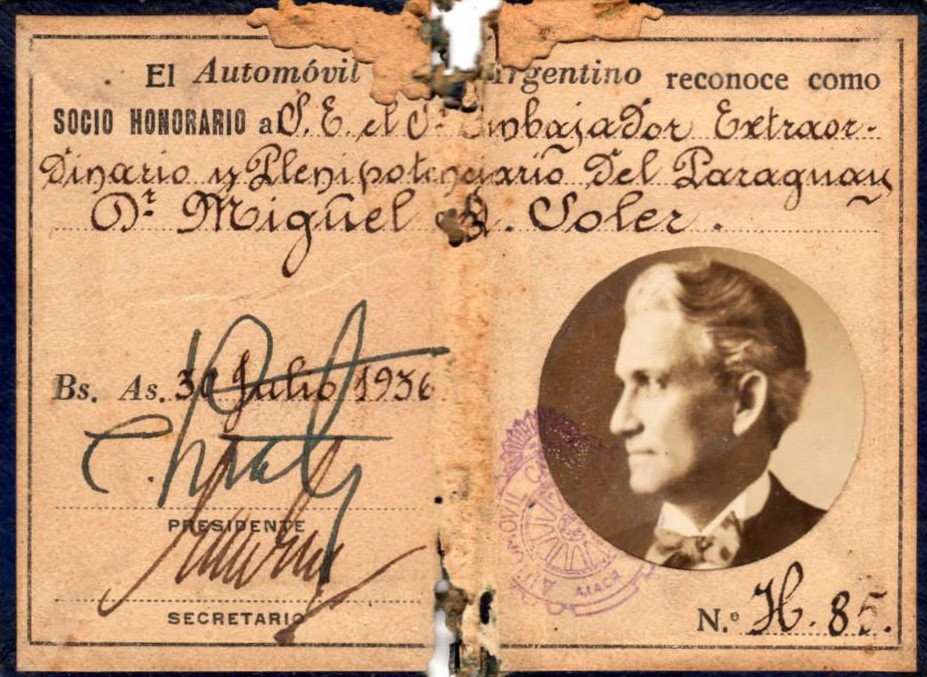 El Automóvil Argentino reconoce como
SOCIO HONORARIO a S. E. el Sr. Embajador Extraor-
dinario y Plenipotenciario del Paraguay
Dr. Miguel A. Soler.
Bs. As. 30 Julio 1936
PRESIDENTE
SECRETARIO
AUTOMOVIL C
N.º H. 85.